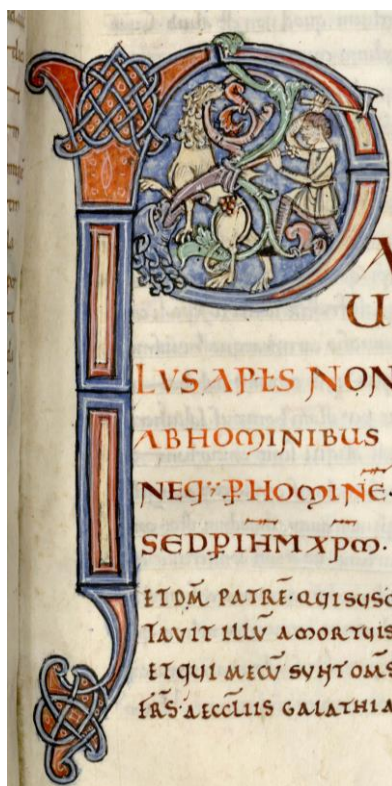 P
A
U
LVS APLS NON
AB HOMINIBUS
NEQ: P HOMINĒ·
SED P IHM XPM·
ET DM̄ PATRĒ· QUI SUSC
TAVIT ILLŪ A MORTUIS
ET QUI MECŪ SUNT OMS̄
FRS̄· AECCLIIS GALATHIA